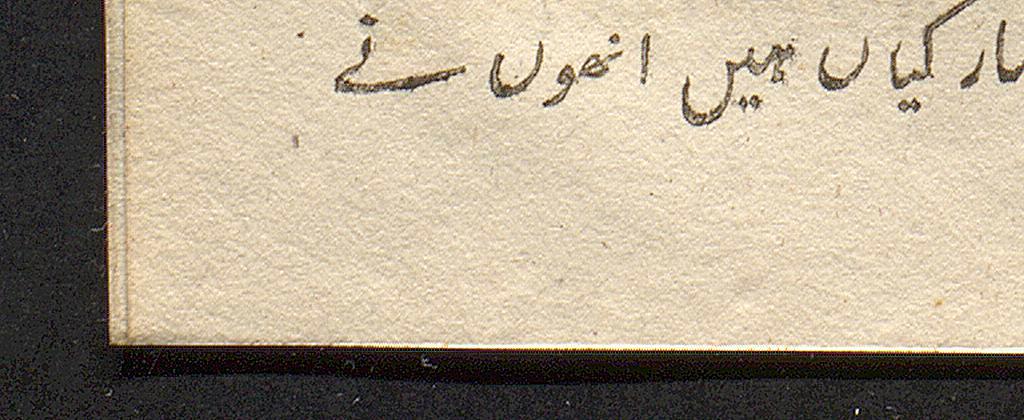 کیاں ہیں انھوں نے